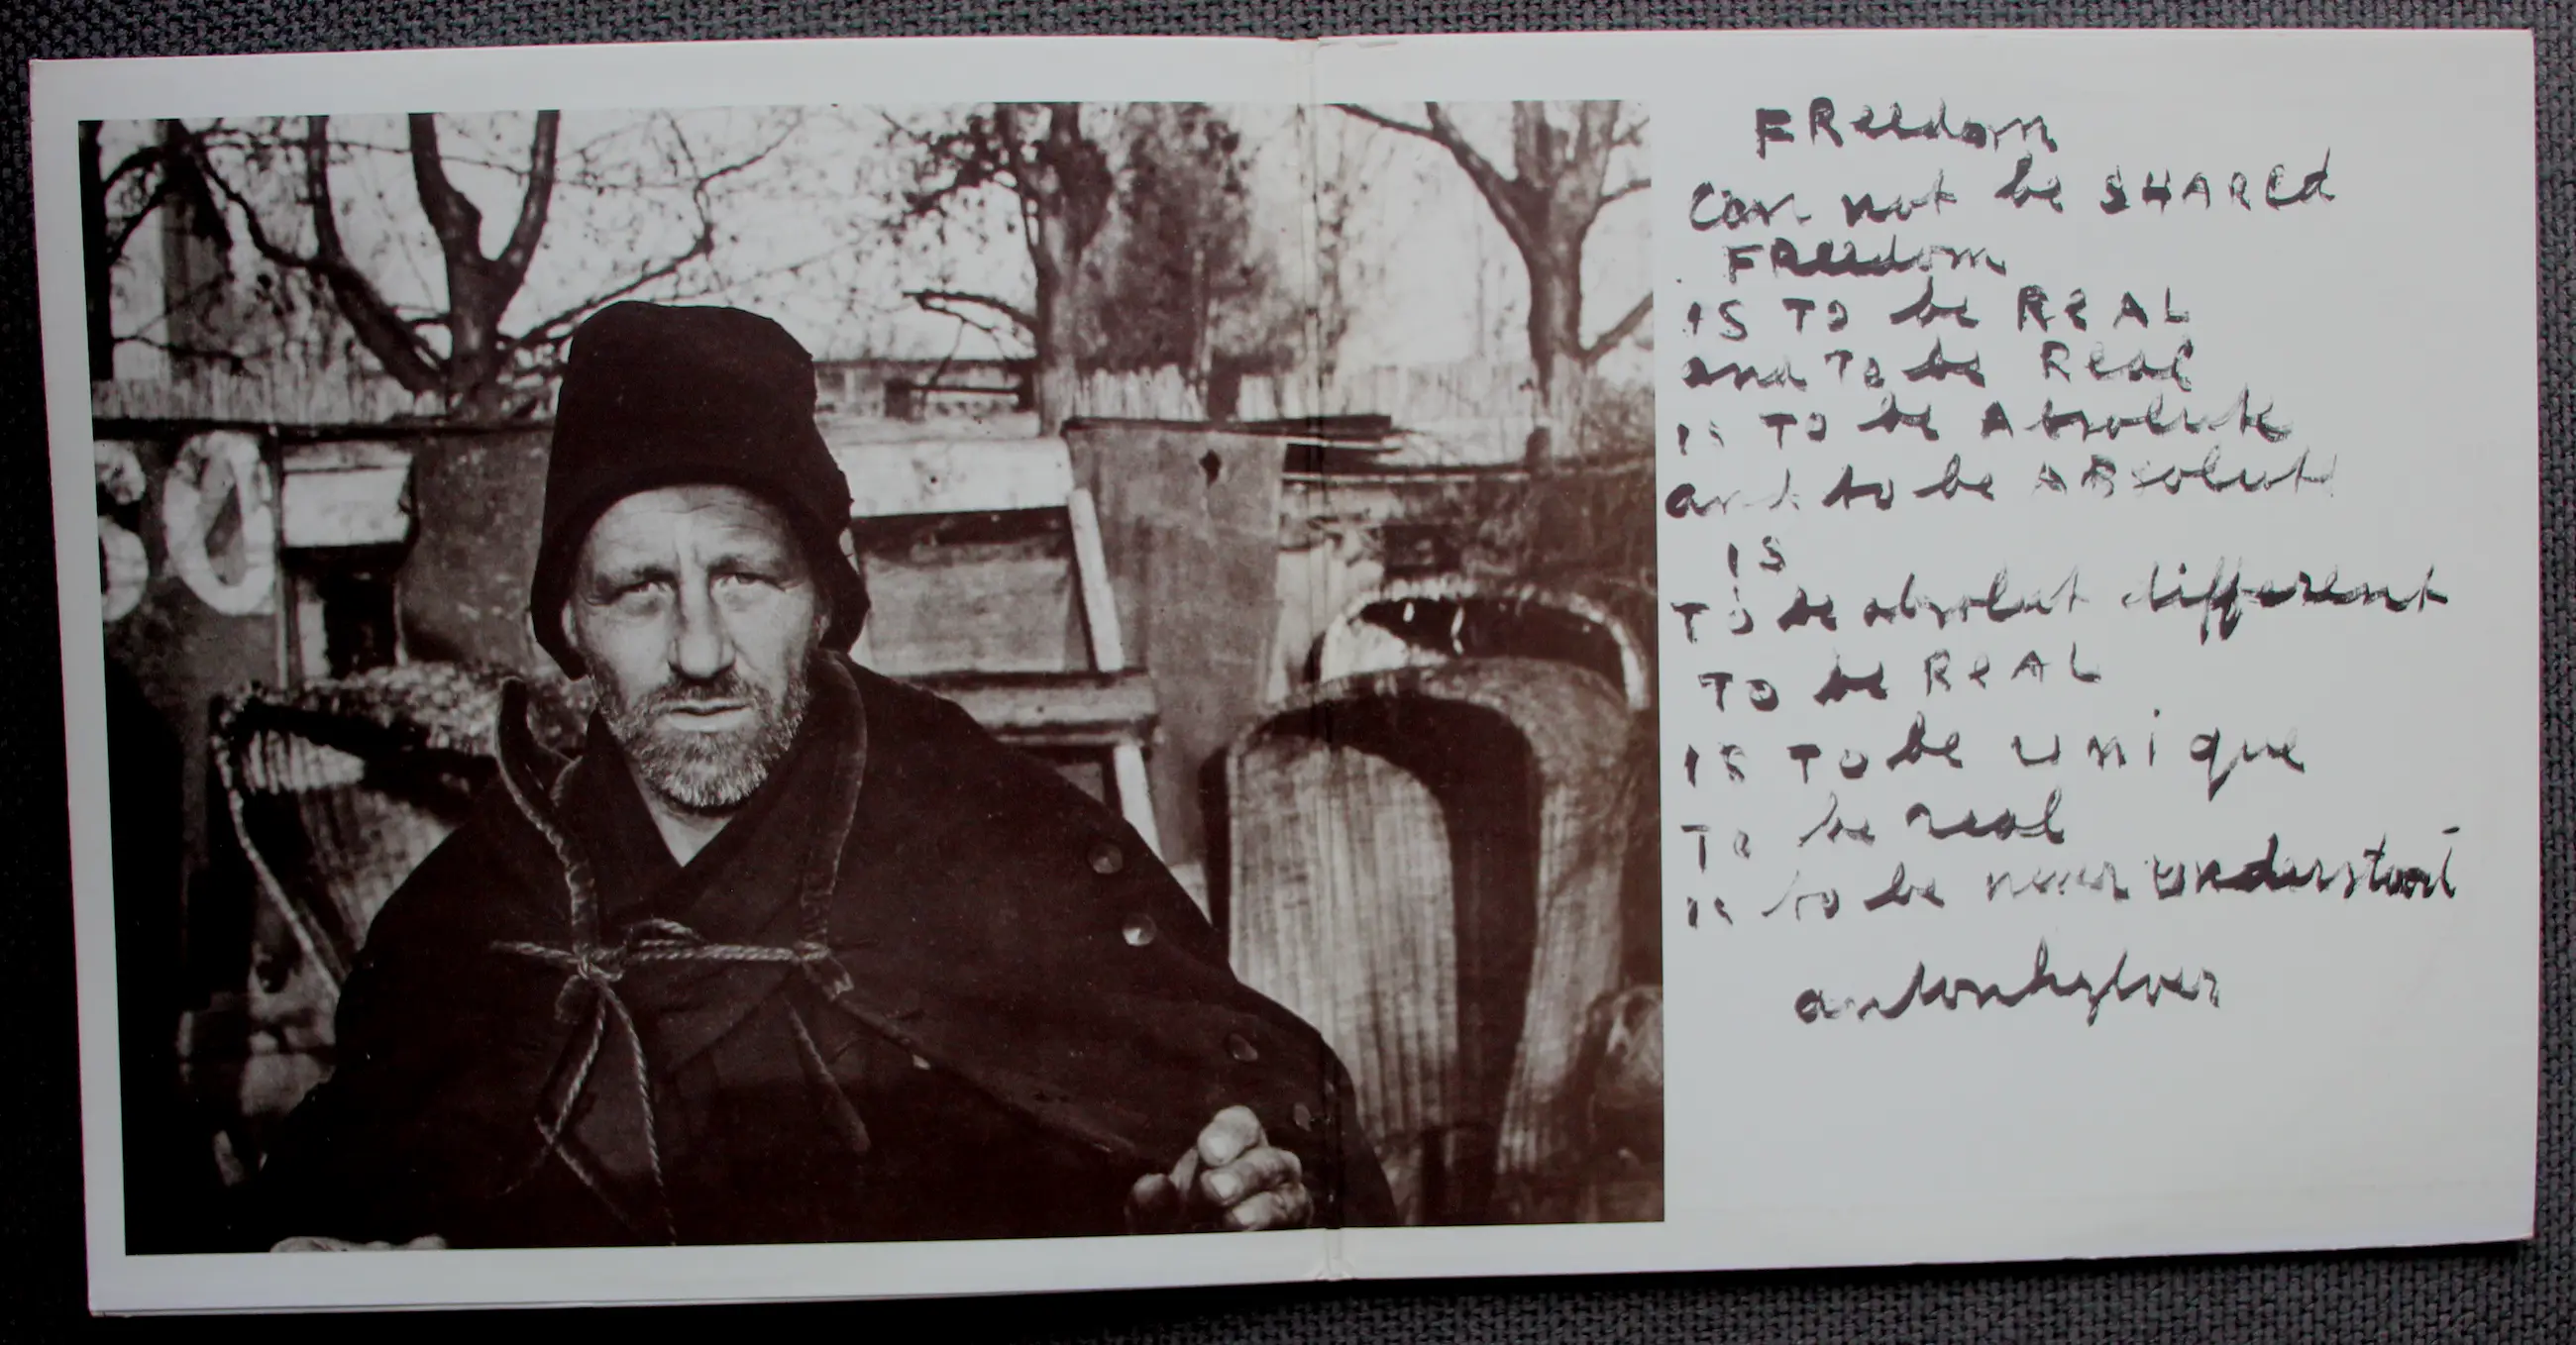 FReedom
Can not be SHARed
FReedom
IS TO be ReAL
and To be Real
is TO be Absolute
and to be ABsolute
IS
TO be absolut different
TO be ReAL
IS TO be unique
To be real
is to be never understood